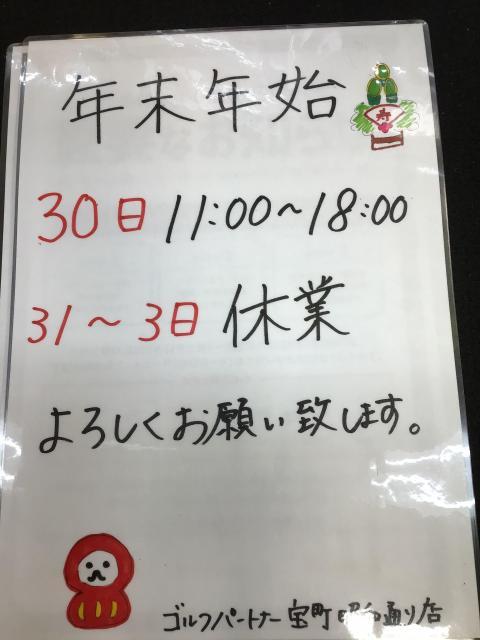 年末年始
寿
30日 11:00～18:00
31～3日 休業
よろしくお願い致します。
ゴルフパートナー宝町昭和通り店